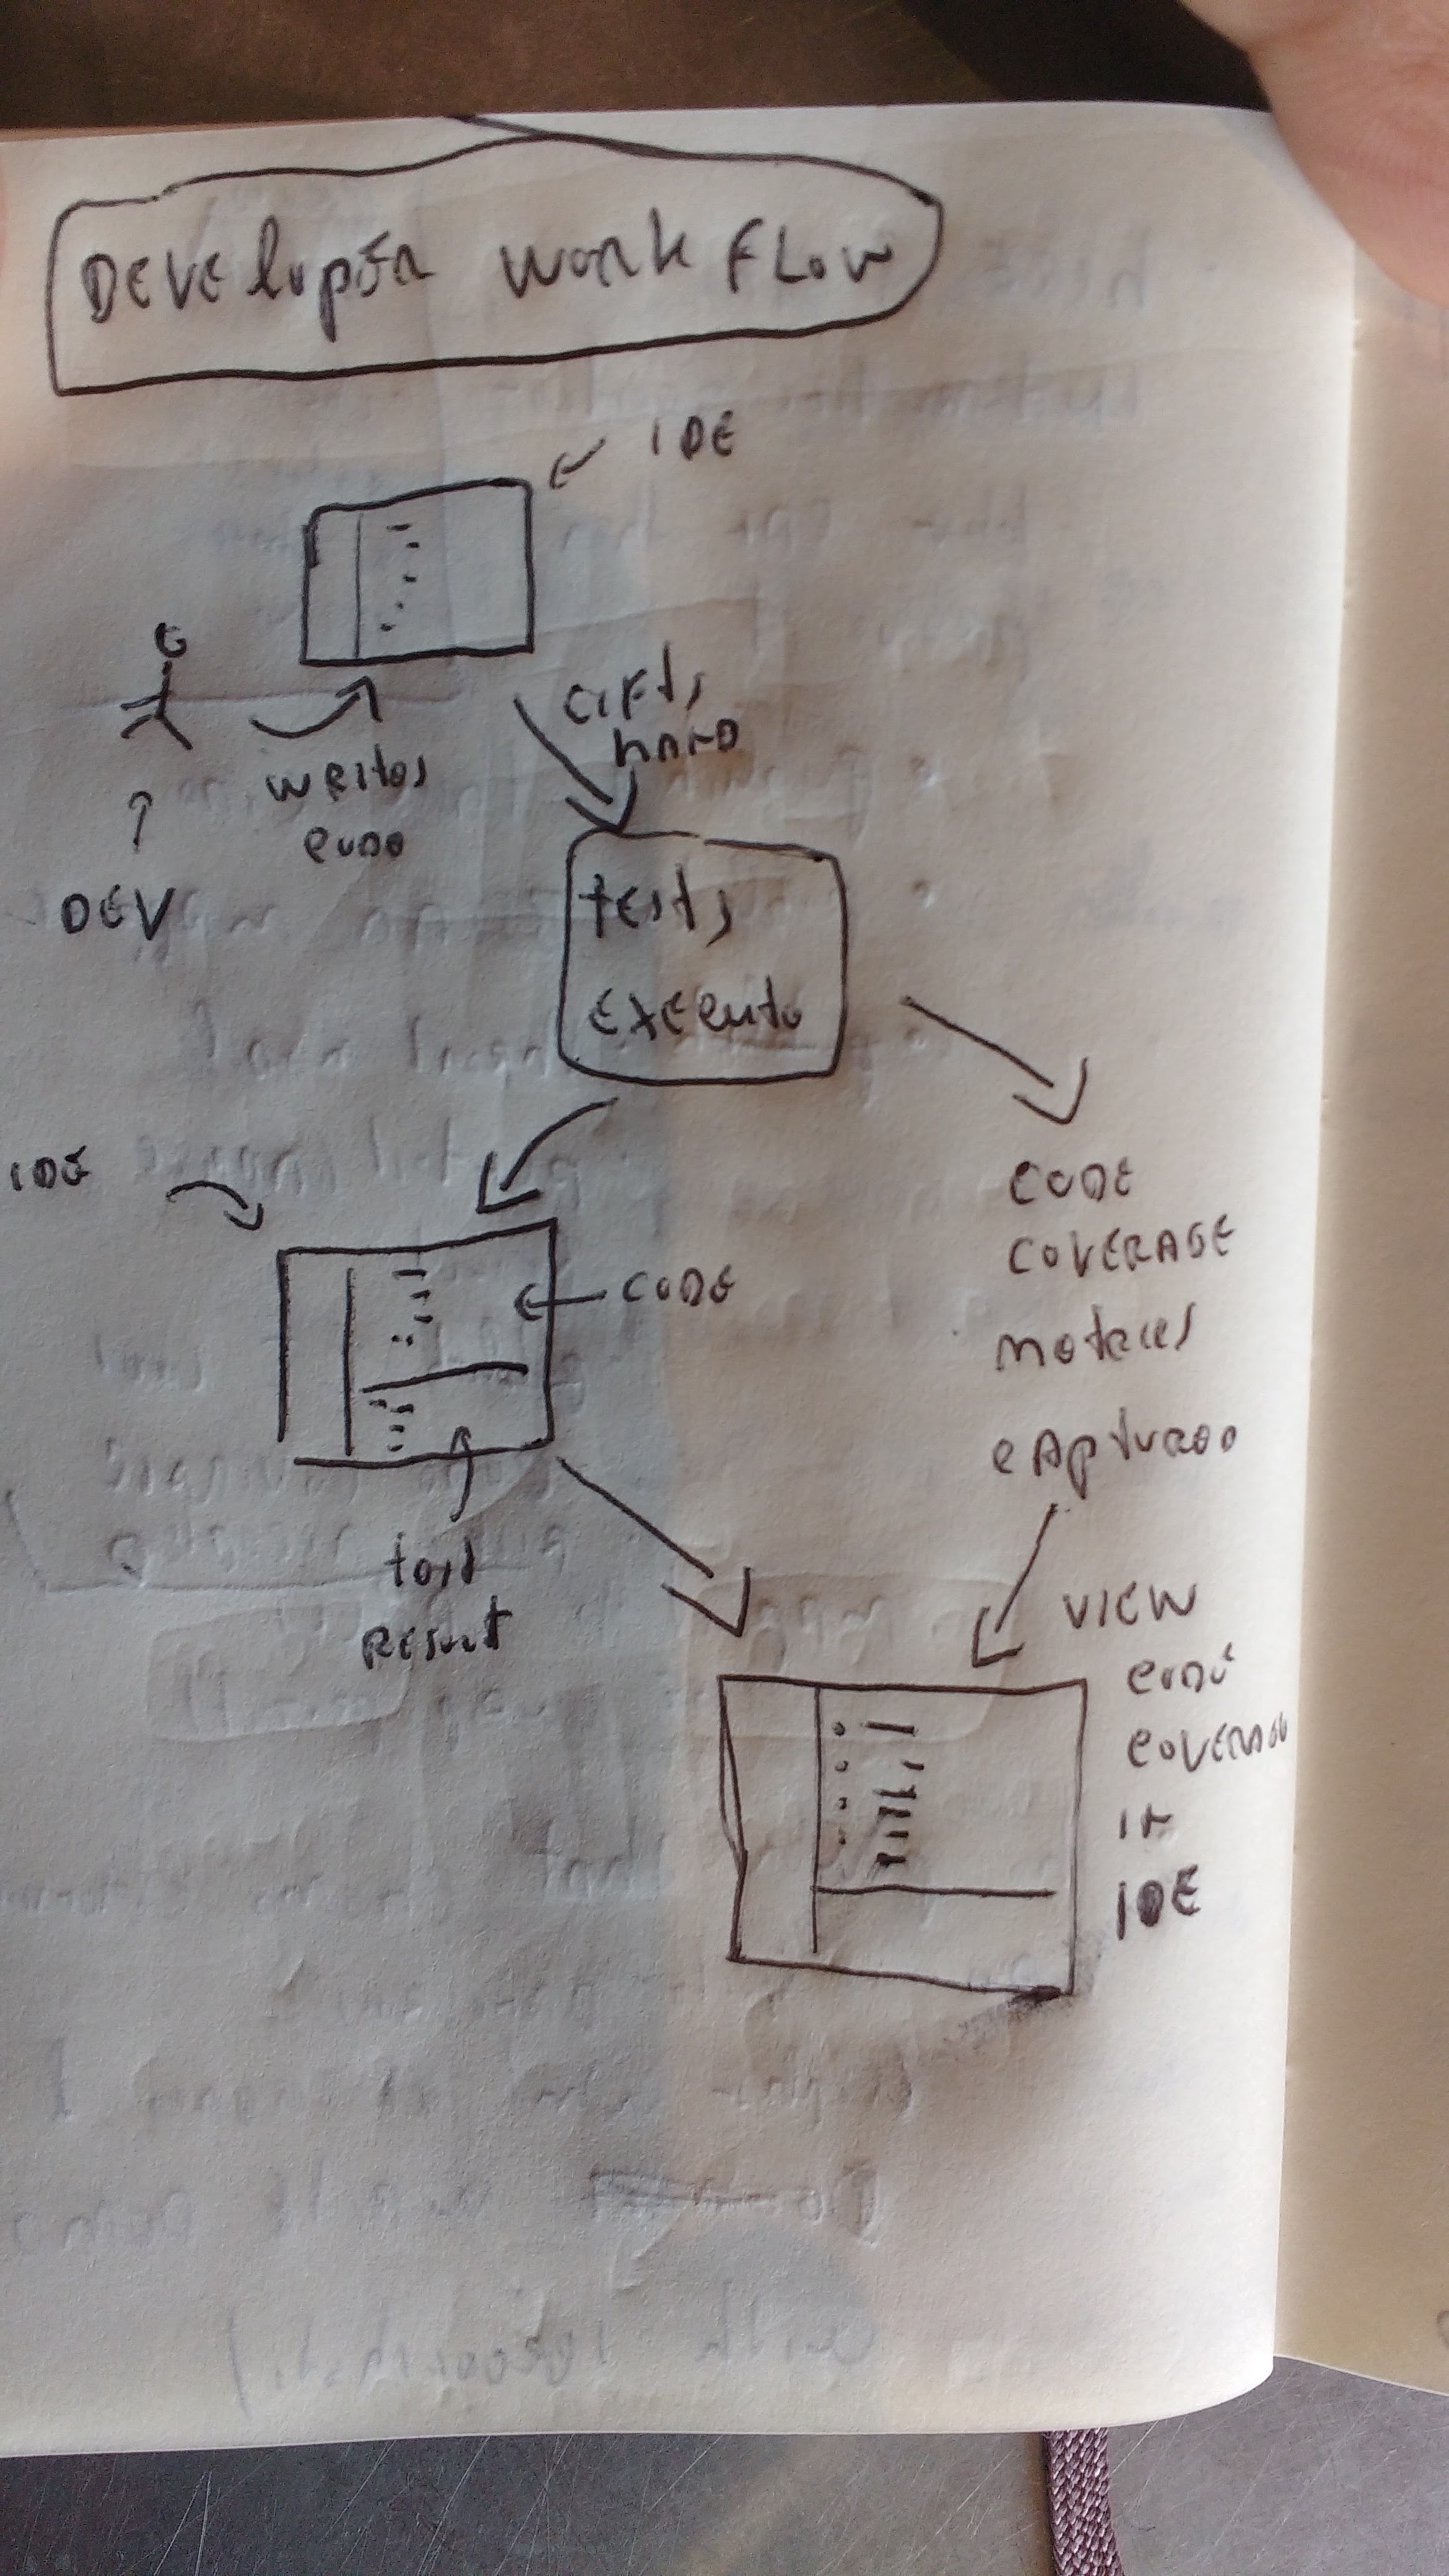 DEVELOPER WORKFLOW
IDE
WRITES
CODE
DEV
TESTS
EXECUTE
IDE
CODE
TEST
RESULT
CODE
COVERAGE
METRICS
CAPTURED
VIEW
CODE
COVERAGE
IN
IDE